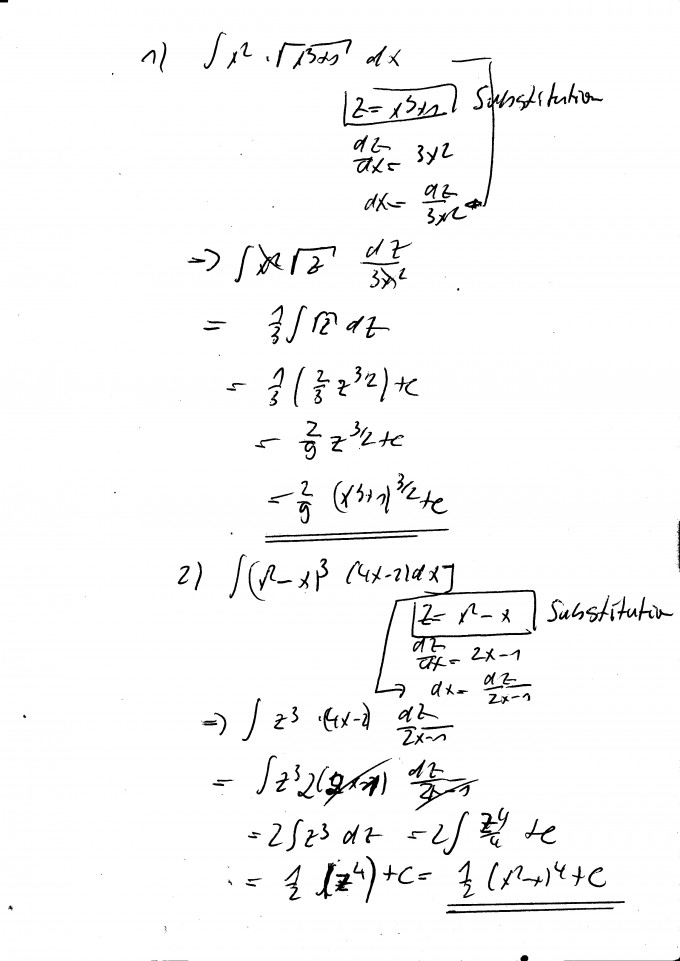 1) ∫x² · √(x³+1) dx
z = x³+1 Substitution
dz/dx = 3x²
dx = dz/3x²
=> ∫x² √z dz/3x²
= 1/3 ∫√z dz
= 1/3 (2/3 z^3/2) + c
= 2/9 z^3/2 + c
= 2/9 (x³+1)^3/2 + c
2) ∫(x²-x)³ (4x-2)dx]
z = x²-x Substitution
dz/dx = 2x-1
dx = dz/2x-1
=> ∫ z³ · (4x-2) dz/2x-1
= ∫z³ 2(2x-1) dz/2x-1
= 2∫z³ dz = 2∫ z⁴/4 + c
= 1/2 (z⁴) + c = 1/2 (x²-x)⁴ + c